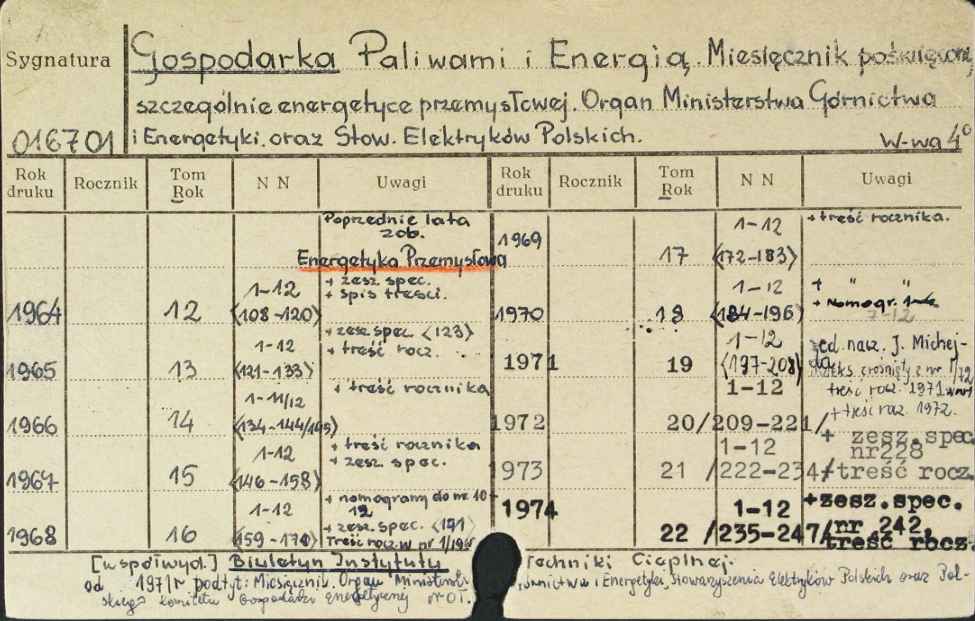 Sygnatura
Gospodarka Paliwami i Energią. Miesięcznik poświęcony
szczególnie energetyce przemysłowej. Organ Ministerstwa Górnictwa
016701 i Energetyki oraz Stow. Elektryków Polskich. W-wa 4°
Rok druku Rocznik Tom Rok N N Uwagi Rok druku Rocznik Tom Rok N N Uwagi
Poprzednie lata
zob.
Energetyka Przemysłowa
1964 12 1-12 <108-120> + zesz spec.
+ spis treści.
1965 13 1-12 <121-133> + zesz spec <123>
+ treść rocz.
1966 14 1-11/12 <134-144/145> + treść rocznika
1967 15 1-12 <146-158> + treść rocznika
+ zesz. spec.
1968 16 1-12 <159-170> + nomogramy do nr. 10+
12
+ zesz. spec. <171>
Treść rocz w nr
1969 17 1-12 <172-183> + treść rocznika.
1970 18 1-12 <184-196> + " "
+ Nomogr.
1971 19 1-12 <197-208> red. nacz. J. Michej-
da
z nr 1/72
treść rocz. 1971 w nr 1
+ treść rocz. 1972.
1972 1-12 20/209-221/ + zesz.spec.
nr228
1973 1-12 21 /222-234/ +treść rocz.
1974 1-12 22 /235-247/ +zesz.spec.
nr 242,
treść rocz.
[współwyd.] Biuletyn Instytutu Techniki Cieplnej.
od 1971r podtyt: Miesięcznik. Organ Ministerst. Górnictwa i Energetyki, Stowarzyszenia Elektryków Polskich oraz Pol-
skiego Komitetu Gospodarki Energetycznej NOT.